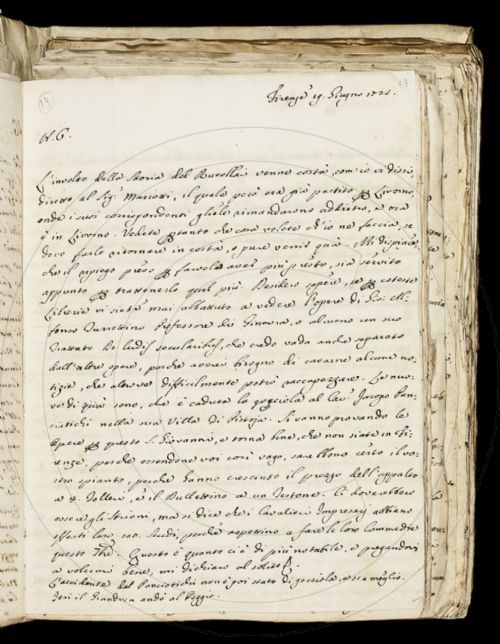 Firenze 19. Giugno 1721.
A. C.
L'involto della Storia del Rucellai venne costà, com'io vi dissi,
diretto al Sig.r Mariotti, il quale però era già partito p Livorno,
onde i suoi corrispondenti glielo rimandarono addietro, e ora
è in Livorno. Vedete pertanto che cosa volete ch'io ne faccia, se
devo farlo ritornare in costà, o pure venir quà. Mi dispiace
che il ripiego preso p farvela aver più presto, sia servito
appunto p trattenerlo quel più. Desidero sapere, se p coteste
Librerie vi siete mai abbattuto a vedere l'opere di
fonso Professore di Ginevra, o almeno un suo
Trattato De ludis secularibus, che credo vada anche separato
dall'altre opere, perchè averei bisogno di cavarne alcune no-
tizie, che altrove difficilmente potrò raccapezzare. Le nuo-
ve di quà sono, che è caduta la gocciola al Cav. Jacopo Pan-
ciatichi nella sua Villa di Pistoja. Si vanno provando le
Opere p questo S. Giovanni, e torna bene, che non siate in Fi-
renze, perchè essendone voi così vago, sarebbono certo il vo-
stro pianto, perchè hanno cresciuto il prezzo dell'appalto
a 4. Talleri, e il Bullettino a un Testone. Ci dovrebbero
essere gli Strioni, ma si dice che i Cavalieri Impresarj abbiano
offerti loro 100. Scudi, perchè aspettino a fare le loro Commedie
questo 7bre. Questo è quanto ci è di più notabile, e pregandovi
a volermi bene, mi dichiaro al solito
L'accidente del Panciatichi non è poi stato di gocciola, e sta meglio.
Ieri il Granduca andò al Poggio.